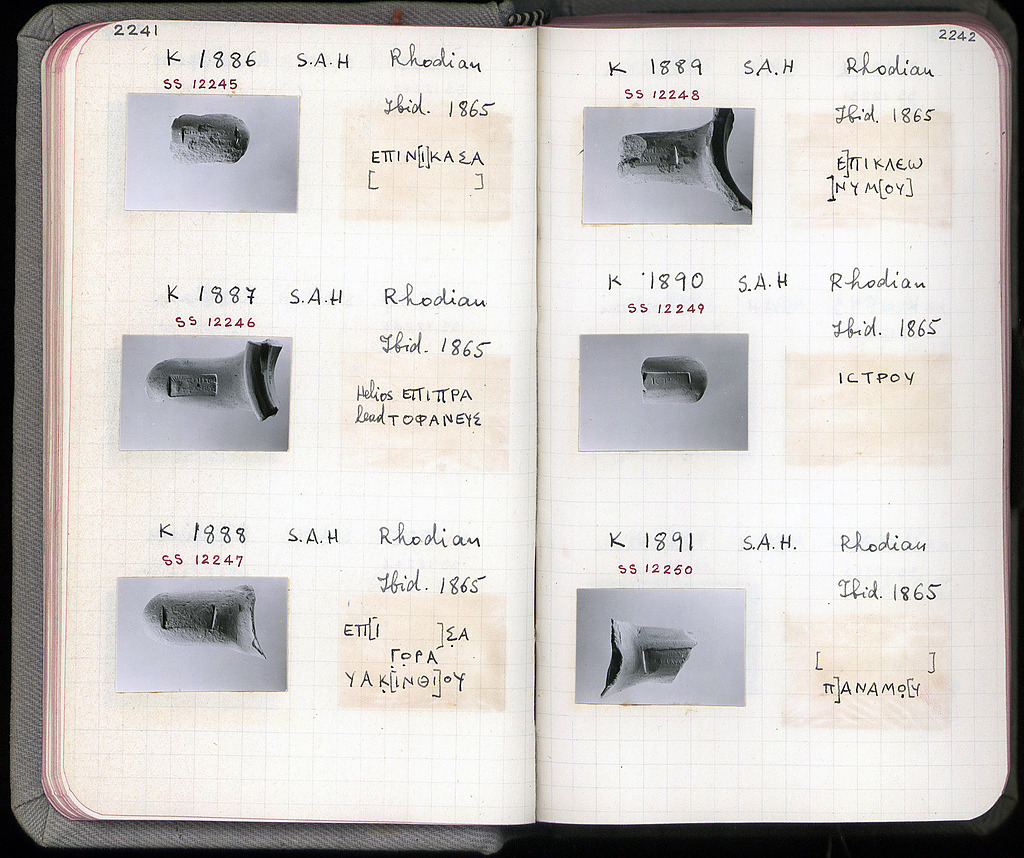 2241
K 1886 S.A.H Rhodian
SS 12245
Ibid. 1865
ΕΠΙΝ[Ι]ΚΑΣΑ
[ ]
K 1887 S.A.H Rhodian
SS 12246
Ibid. 1865
Helios ΕΠΙΠΡΑ
head ΤΟΦΑΝΕΥΣ
K 1888 S.A.H Rhodian
SS 12247
Ibid. 1865
ΕΠ[Ι ]Σ̣Α
Γ̣Ο̣ΡΑ
ΥΑΚ̣[ΙΝΘΙ]ΟΥ
2242
K 1889 S.A.H Rhodian
SS 12248
Ibid. 1865
Ε]ΠΙΚΛΕω
]ΝΥΜ[ΟΥ]
K 1890 S.A.H Rhodian
SS 12249
Ibid. 1865
ΙCΤΡΟΥ
K 1891 S.A.H. Rhodian
SS 12250
Ibid. 1865
[ ]
Π]ΑΝΑΜΟ̣[Υ